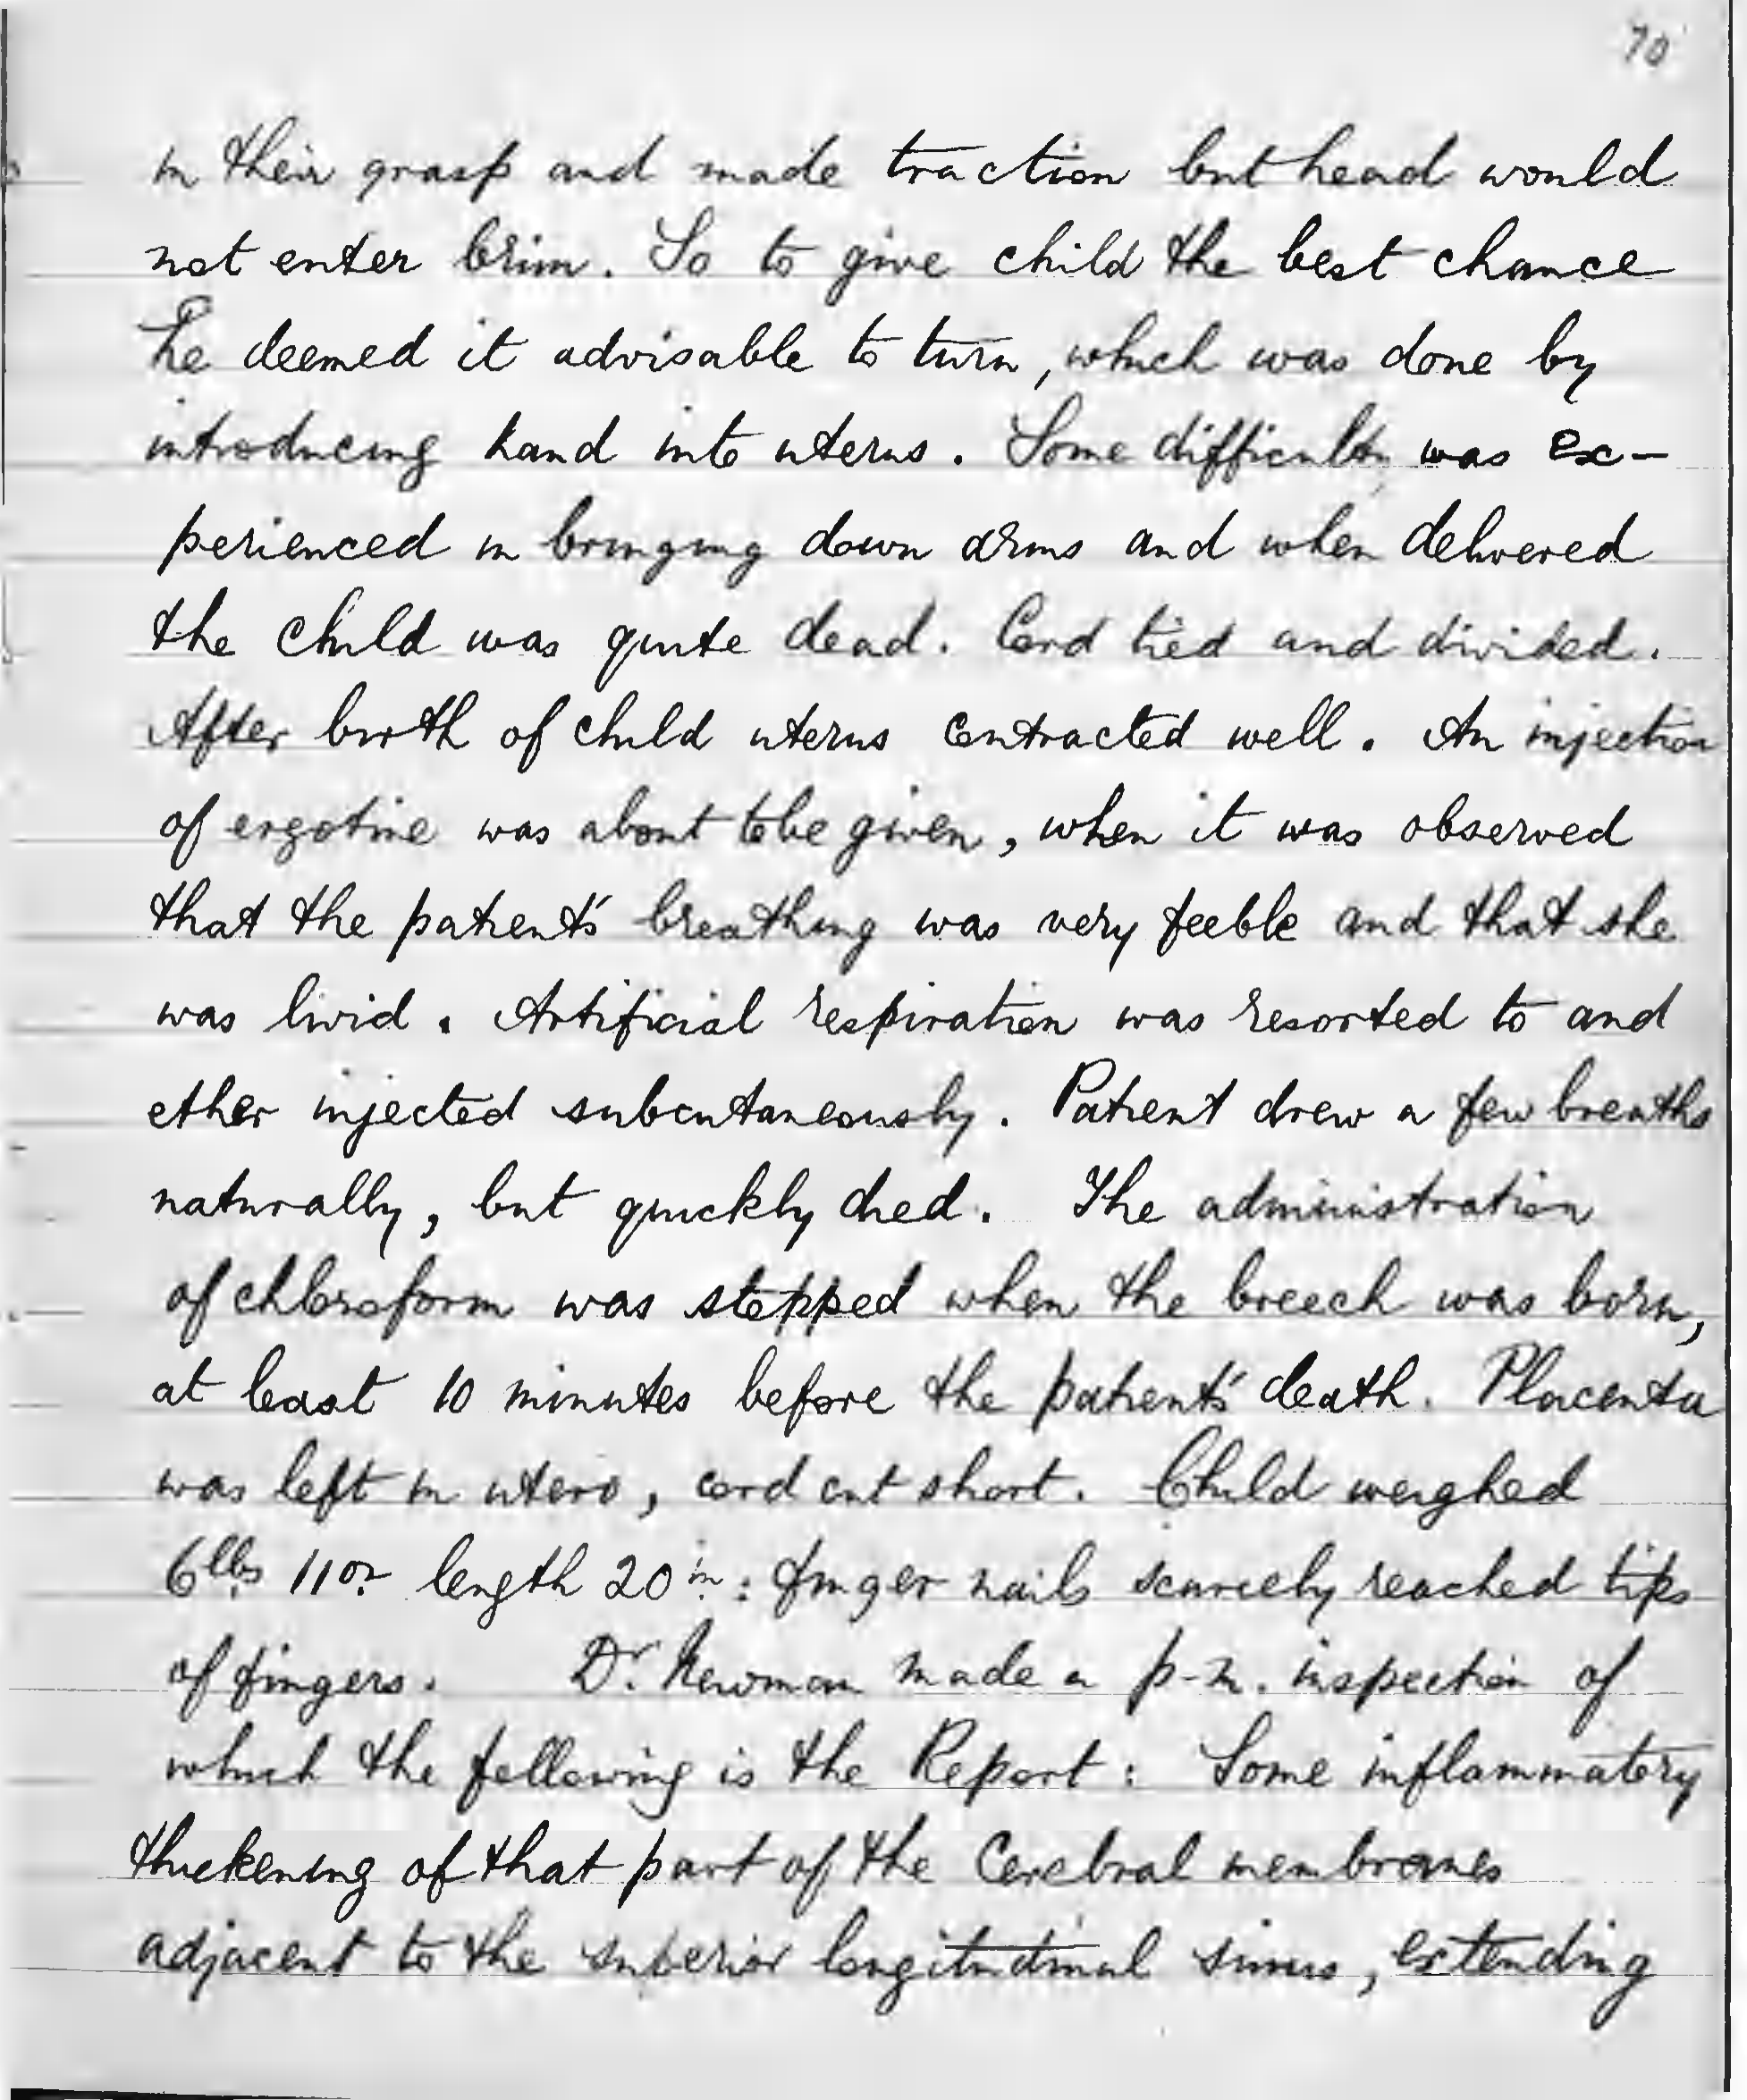 70
in their grasp and made traction but head would
not enter brim. So to give child the best chance
he deemed it advisable to turn, which was done by
introducing hand into uterus. Some difficulty was ex-
perienced in bringing down arms and when delivered
the child was quite dead. Cord tied and divided.
After birth of child uterus contracted well. An injection
of ergotine was about to be given, when it was observed
that the patient's breathing was very feeble and that she
was livid. Artificial respiration was resorted to and
ether injected subcutaneously. Patient drew a few breaths
naturally, but quickly died. The administration
of chloroform was stopped when the breech was born,
at least 10 minutes before the patient's death. Placenta
was left in utero, cord cut short. Child weighed
6lbs 11oz length 20in: finger nails scarcely reached tips
of fingers. Dr. Newman made a p-m. inspection of
which the following is the Report: Some inflammatory
thickening of that part of the Cerebral membranes
adjacent to the superior longitudinal sinus, extending